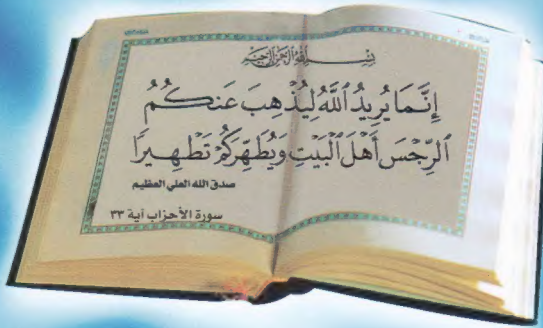 بِسْمِ اللَّهِ الرَّحْمَنِ الرَّحِيمِ
إِنَّمَا يُرِيدُ ٱللَّهُ لِيُذْهِبَ عَنكُمُ
ٱلرِّجْسَ أَهْلَ ٱلْبَيْتِ وَيُطَهِّرَكُمْ تَطْهِيرًا
صدق الله العلي العظيم
سورة الأحزاب آية ٣٣